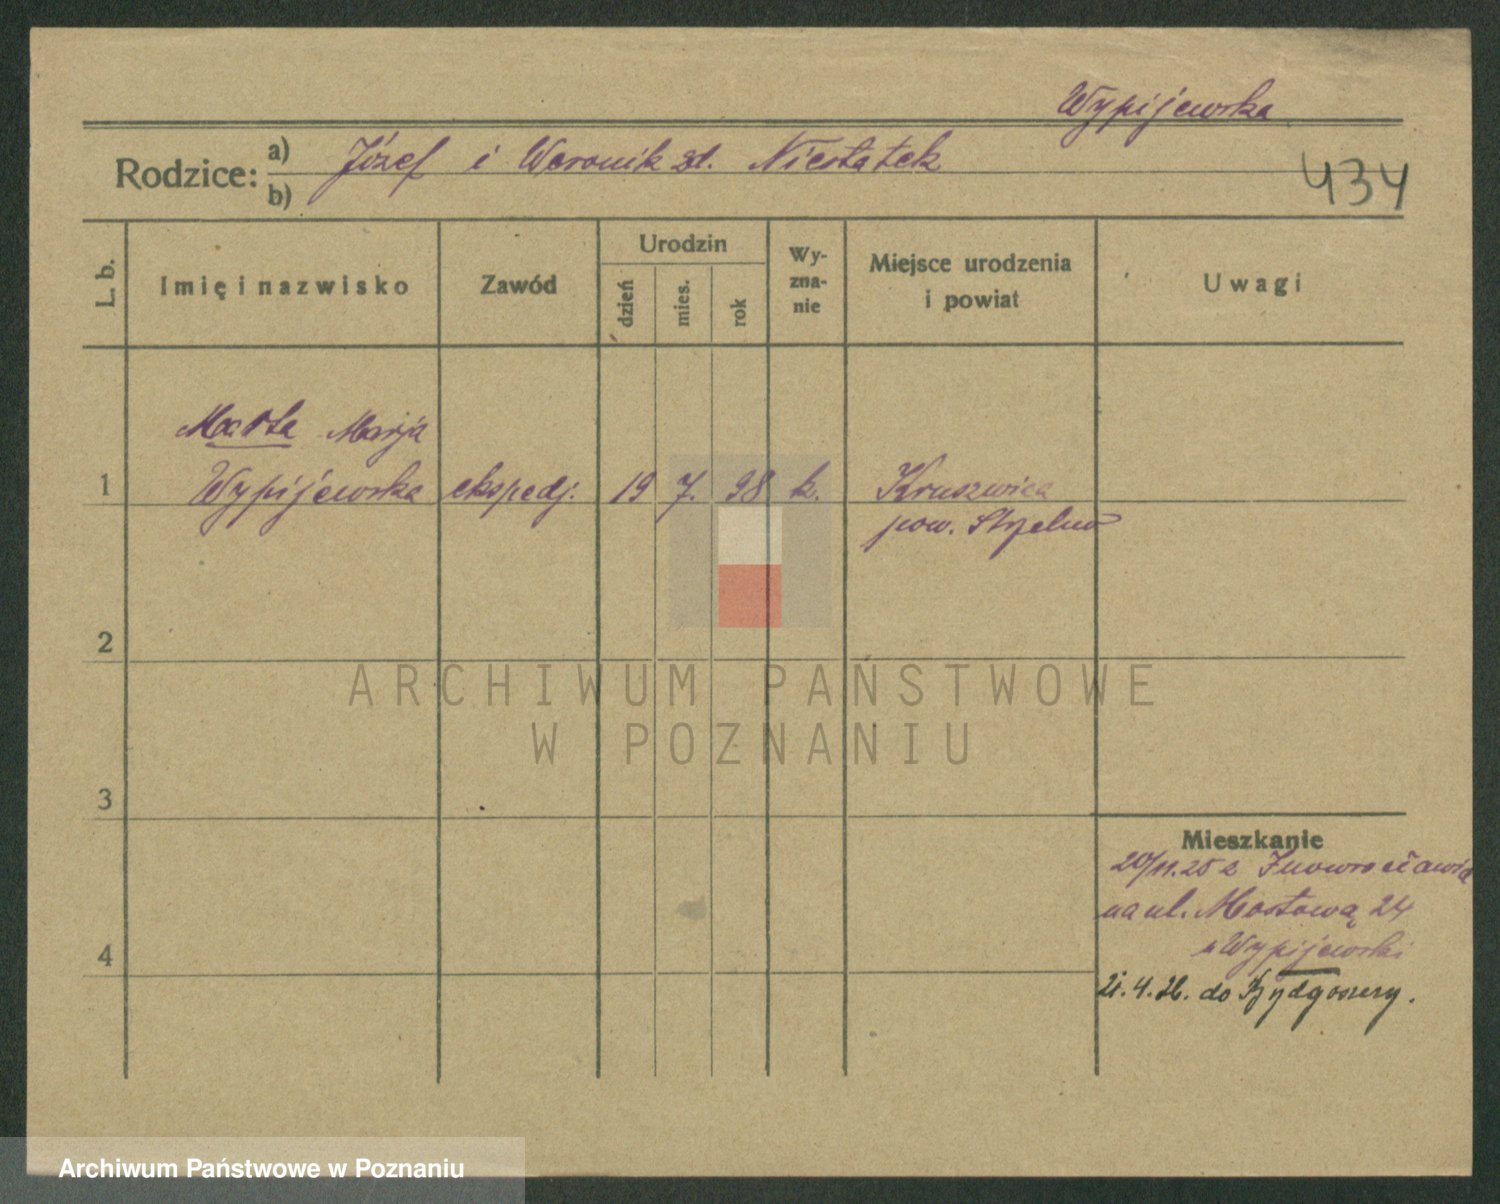 Wypijewska
Rodzice: a) Józef i Weronik zd. Niestatek
b)
434
L. b.
Imię i nazwisko
Zawód
Urodzin
dzień
mies.
rok
Wy-
zna-
nie
Miejsce urodzenia
i powiat
Uwagi
Marta Marja
1 Wypijewska ekspedj. 19 7. 98 k. Kruszwica
pow. Strzelno
2
ARCHIWUM PAŃSTWOWE
W POZNANIU
3
4
Mieszkanie
20/11.25 z Inowrocławia
na ul. Mostową 24
u Wypijewski
21.4.26. do Bydgoszczy.
Archiwum Państwowe w Poznaniu